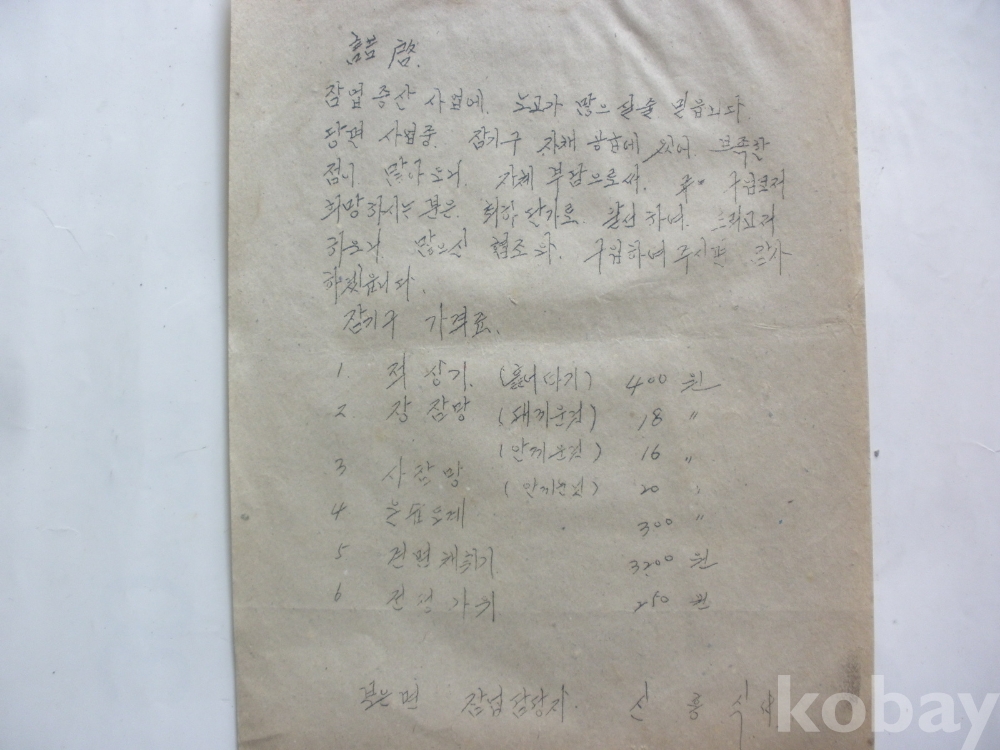 잠업 증산 사업에. 노고가 많으실줄 믿읍니다
당면 사업중. 잠기구 자체 공급에 있어 부족한
점이 많아 오니. 자체 부담으로써. 구입코저
희망하시는 분은. 최하 단가로. 알선 하여. 드리고저
하오니 많으신 협조와. 구입하여 주시면 감사
하겠읍니다.
잠기구 가격표.
1 적상기. (훌터따기) 400 원
2 장잠망 (돼끼운것) 18 〃
(안끼운것) 16 〃
3 사잠망 (안끼운것) 20 〃
4 온도계 300 〃
5 전면채취기 3200 원
6 전정가위 250 원
면 잠업담당자. 신 홍 식
kobay